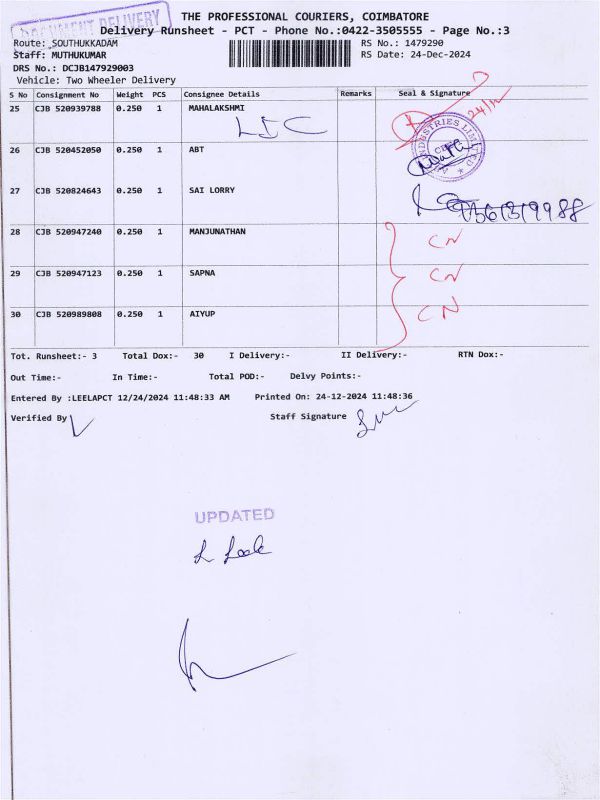 DOCUMENT DELIVERY
THE PROFESSIONAL COURIERS, COIMBATORE
Delivery Runsheet - PCT - Phone No.:0422-3505555 - Page No.:3
Route: SOUTHUKKADAM RS No.: 1479290
Staff: MUTHUKUMAR RS Date: 24-Dec-2024
DRS No.: DCJB147929003
Vehicle: Two Wheeler Delivery
S No Consignment No Weight PCS Consignee Details Remarks Seal & Signature
25 CJB 520939788 0.250 1 MAHALAKSHMI
LIC
24/12
INDUSTRIES LIMITED
26 CJB 520452050 0.250 1 ABT
27 CJB 520824643 0.250 1 SAI LORRY
28 CJB 520947240 0.250 1 MANJUNATHAN CN
29 CJB 520947123 0.250 1 SAPNA CN
30 CJB 520989808 0.250 1 AIYUP CN
Tot. Runsheet:- 3 Total Dox:- 30 I Delivery:- II Delivery:- RTN Dox:-
Out Time:- In Time:- Total POD:- Delvy Points:-
Entered By :LEELAPCT 12/24/2024 11:48:33 AM Printed On: 24-12-2024 11:48:36
Verified By Staff Signature
UPDATED